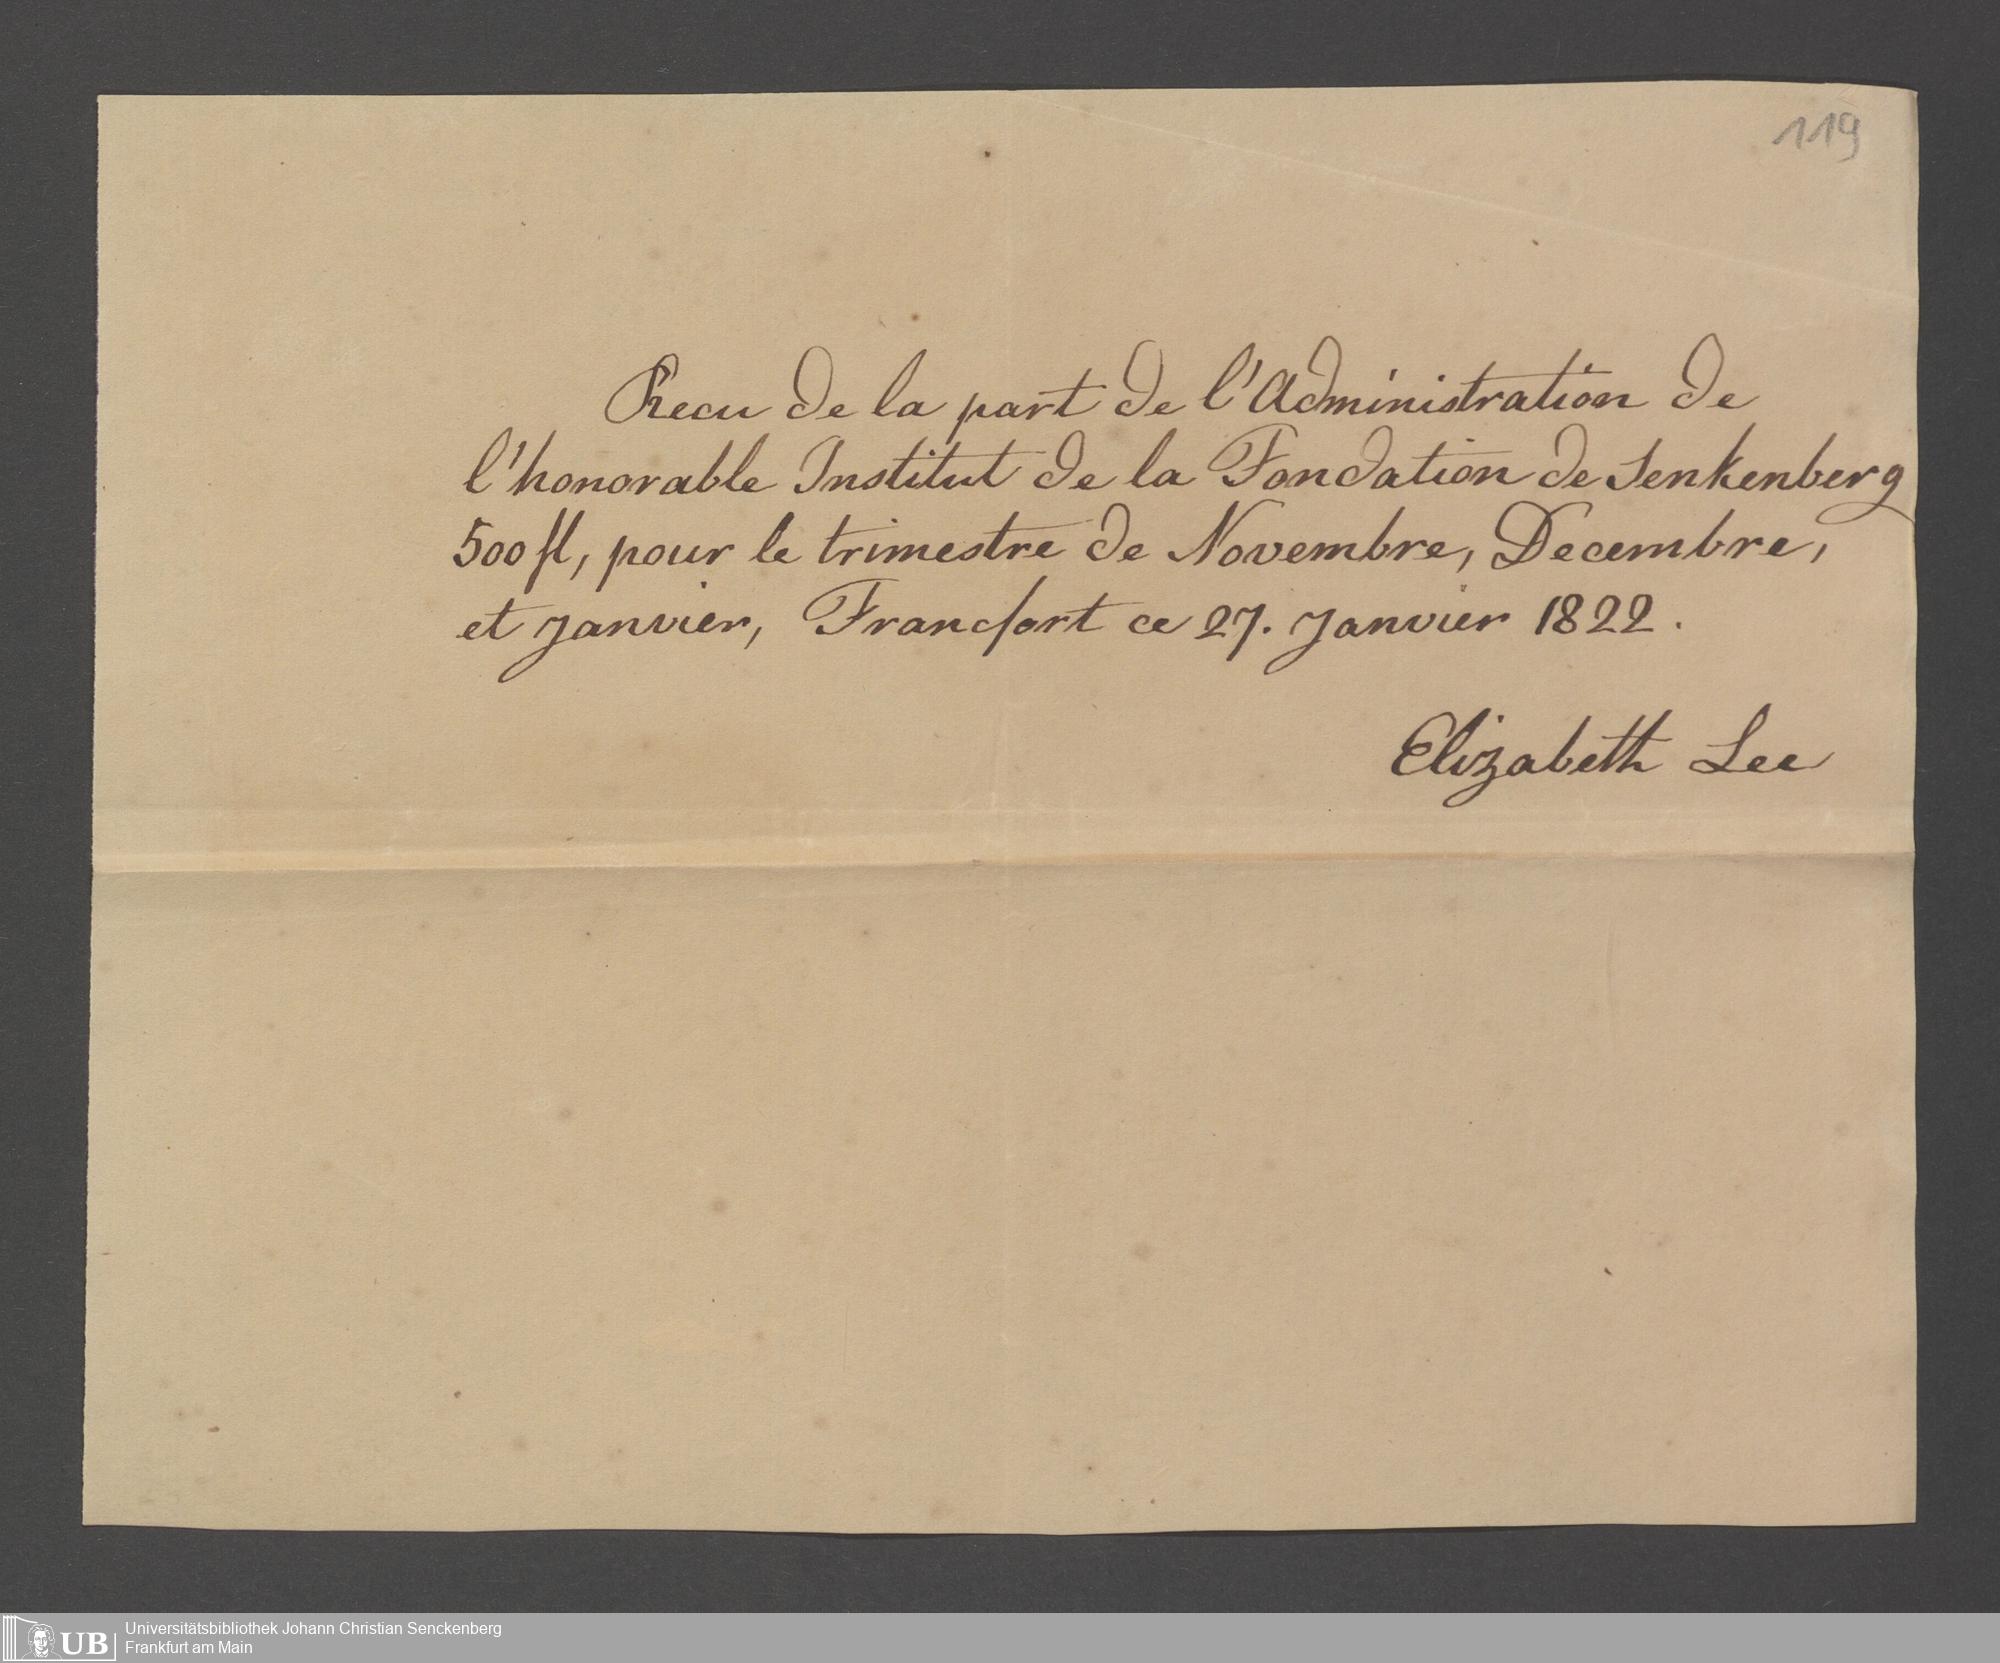 119
Recu de la part de l'Administration de
l'honorable Institut de la Fondation de Senkenberg
500 fl, pour le trimestre de Novembre, Decembre,
et Janvier, Francfort ce 27. Janvier 1822.
Elizabeth Lee
UB
Universitätsbibliothek Johann Christian Senckenberg
Frankfurt am Main